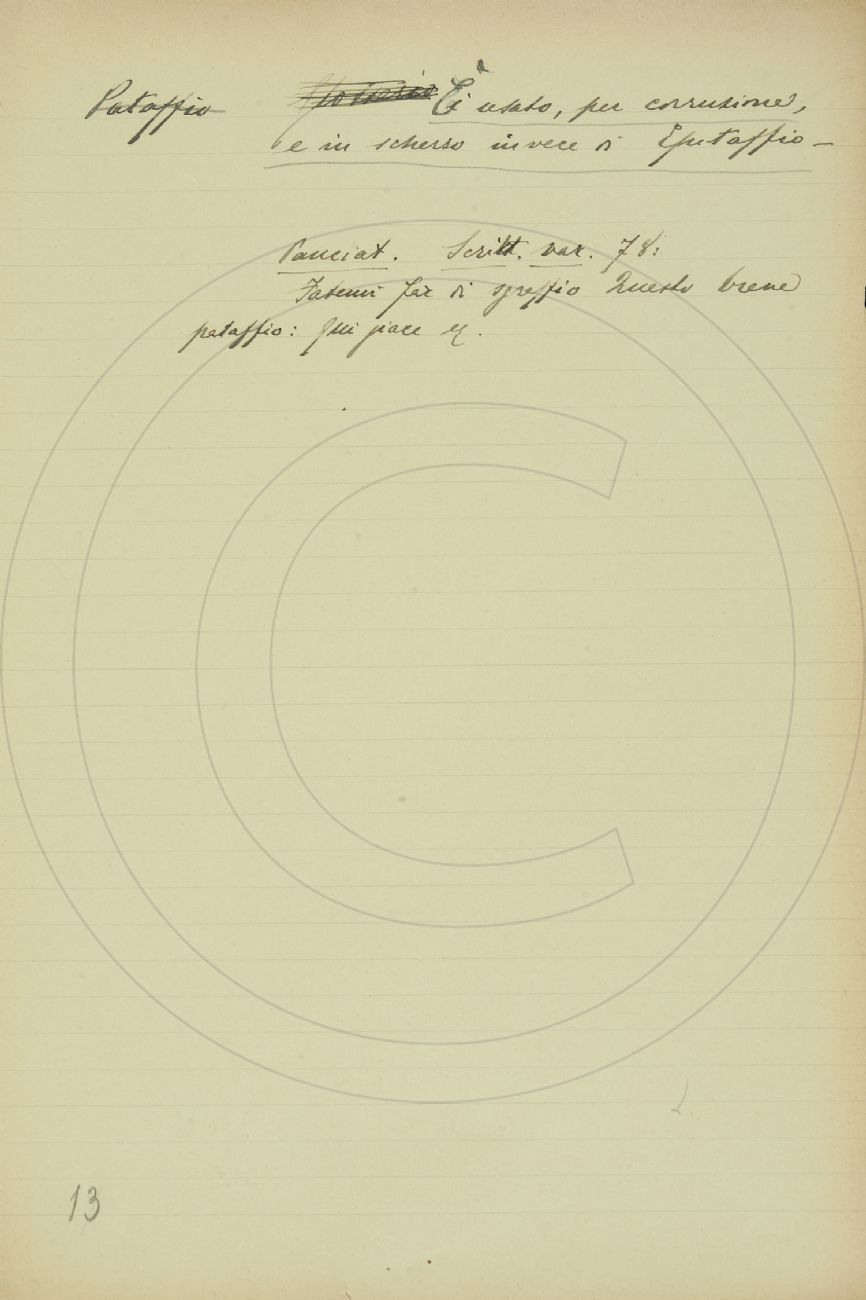 Pataffio È usato, per corruzione,
e in scherzo invece di Epitaffio —
Panciat. Scritt. var. 78:
Fatemi far di sgraffio Questo breve
pataffio: Qui giace ec.
13